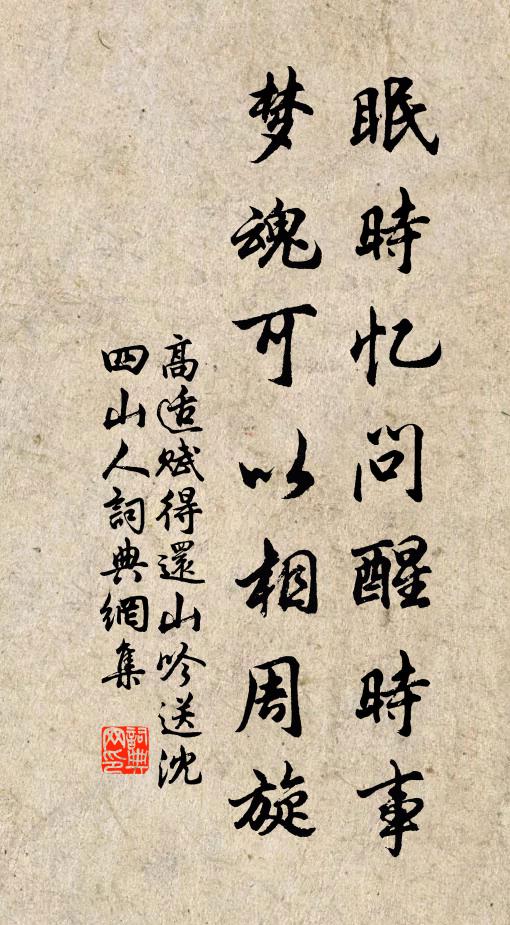 眠時忆问醒時事
梦魂可以相周旋
高适赋得還山吟送沈
四山人詞典網集
詞典
网印